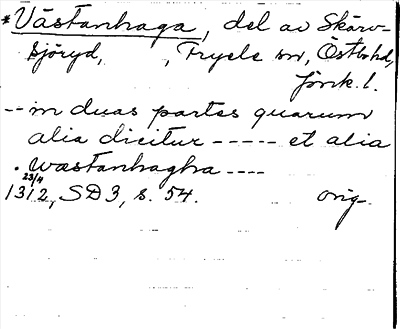 *Västanhaga, del av Skärv-
sjöryd, , Tryele sn, Östbo hd,
Jönk. l.
-- in duas partes quarum
alia dicitur ----- et alia
. wæstanhagha ----
23/4
1312, SD3, s. 54. orig.